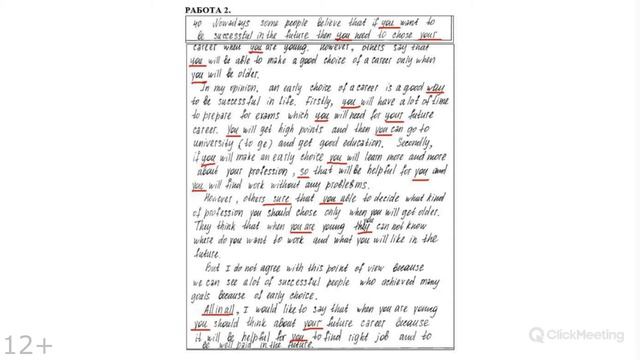 РАБОТА 2.
40 Nowadays some people believe that if you want to
be successful in the future then you need to chose your
career when you are young. However, others say that
you will be able to make a good choice of a career only when
you will be older.
In my opinion, an early choice of a career is a good way
to be successful in life. Firstly, you will have a lot of time
to prepare for exams which you will need for your future
career. You will get high points and then you can go to
university (to ge) and get good education. Secondly,
if you will make an early choice you will learn more and more
about your profession, so that will be helpful for you and
you will find work without any problems.
However, others sure that you able to decide what kind
of profession you should chose only when you will get older.
They think that when you are young they you can not know
where do you want to work and what you will like in the
future.
But I do not agree with this point of view because
we can see a lot of successful people who achieved many
goals because of early choice.
All in all, I would like to say that when you are young
you should think about your future career because
it will be helpful for you to find right job and to
be well paid in the future.
12+
ClickMeeting